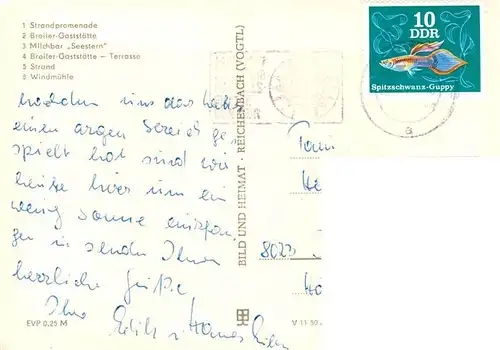 1 Strandpromenade
2 Broiler-Gaststätte
3 Milchbar „Seestern"
4 Broiler-Gaststätte – Terrasse
5 Strand
6 Windmühle
10
DDR
Spitzschwanz-Guppy
nachdem uns das
einen argen Streich ge-
spielt hat sind wir
heute hier um ein
wenig Sonne einzufan-
gen u. senden Ihnen
herzliche Grüße
Ihre
Edith u. Hannes
EVP 0,25 M
BILD UND HEIMAT · REICHENBACH (VOGTL)
Fam
He
802
V 11 50
a